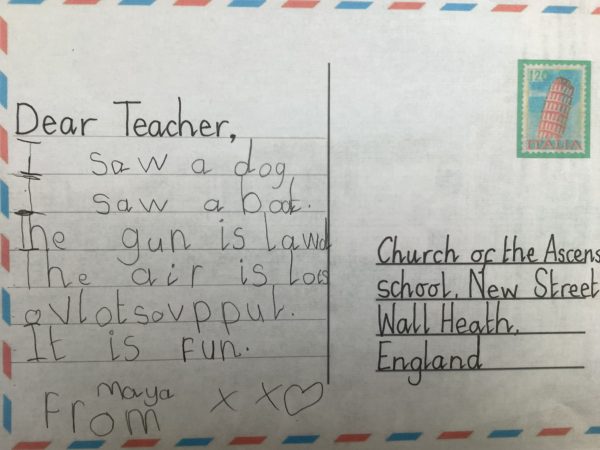 Dear Teacher,
I saw a dog
I saw a boat.
The gun is lawd
The air is lots
ovlotsovppul.
It is fun.
From Maya x x
120
ITALIA
Church of the Ascens
school, New Street
Wall Heath,
England